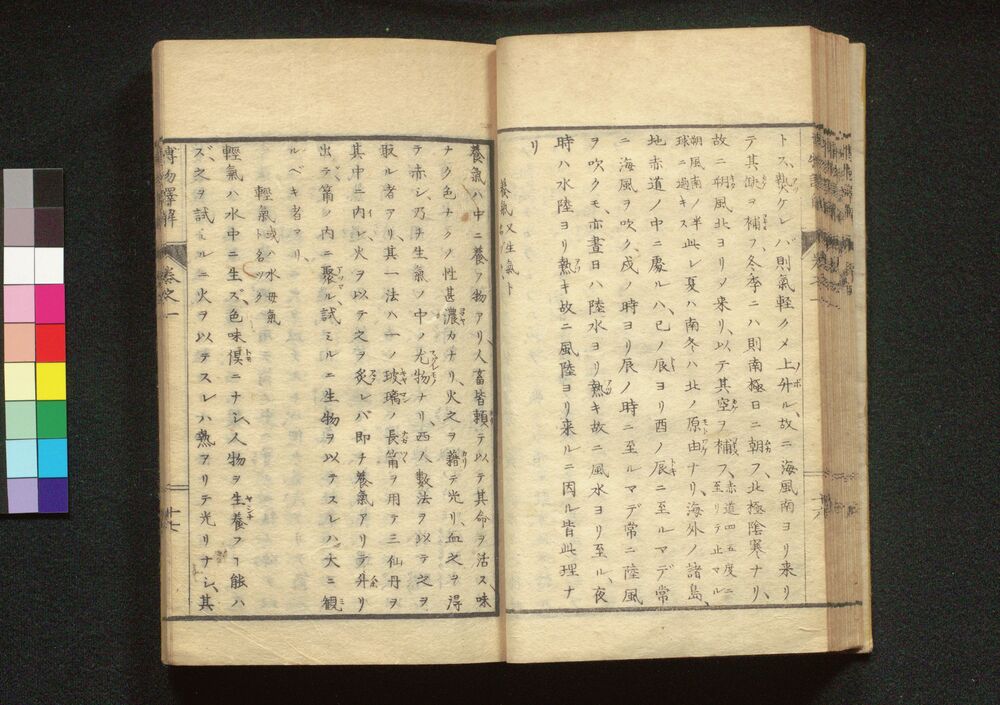 トス、熱ケレバ則氣軽クメ上升ル、故ニ海風南ヨリ来リ
テ其缺ヲ補フ、冬季ニハ則南極日ニ朝フ、北極陰寒ナリ、
故ニ朔風北ヨリノ来リ、以テ其空ヲ補フ、赤道四五度ニ至リテ止マル
朔風南ノ半球ニ過キス此レ夏ハ南冬ハ北ノ原由ナリ、海外ノ諸島、
地赤道ノ中ニ處ルハ、巳ノ辰ヨリ酉ノ辰ニ至ルマデ常
ニ海風ヲ吹ク、戌ノ時ヨリ辰ノ時ニ至ルマデ常ニ陸風
ヲ吹クモ、亦晝日ハ陸水ヨリ熱キ故ニ風水ヨリ至ル、夜
時ハ水陸ヨリ熱キ故ニ風陸ヨリ来ルニ因ル皆此理ナ
リ
養氣又生氣ト
養氣ハ中ニ養フ物アリ、人畜皆頼テ以テ其命ヲ活ス、味
ナク色ナクメ性甚濃カナリ、火之ヲ藉テ光リ、血之ヲ得
テ赤シ、乃チ生氣ノ中ノ尤物ナリ、西人數法ヲ以テ之ヲ
取ル者アリ、其一法ハ一ノ玻璃ノ長筩ヲ用テ三仙丹ヲ
其中ニ内レ、火ヲ以テ之ヲ炙レバ即チ養氣アリテ升リ
出テ筩ノ内ニ聚ル、試ミルニ生物ヲ以テスレハ大ニ観
ルベキ者アリ、
輕氣或ハ水母氣ト名ック
輕氣ハ水中ニ生ズ、色味倶ニナシ、人物ヲ生養フヿ能ハ
ズ、之ヲ試ミルニ火ヲ以テスレハ熱アリテ光リナシ、其
博物譯解
巻之一
十七